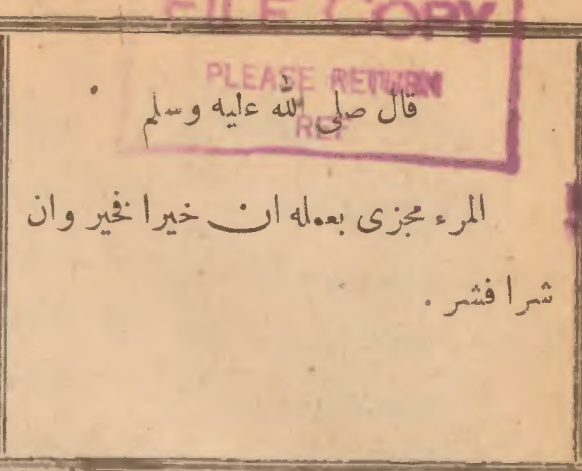 FILE COPY
PLEASE RETURN
REF
قال صلى الله عليه وسلم
المرء مجزى بعمله ان خيرا فخير وان
شرا فشر .